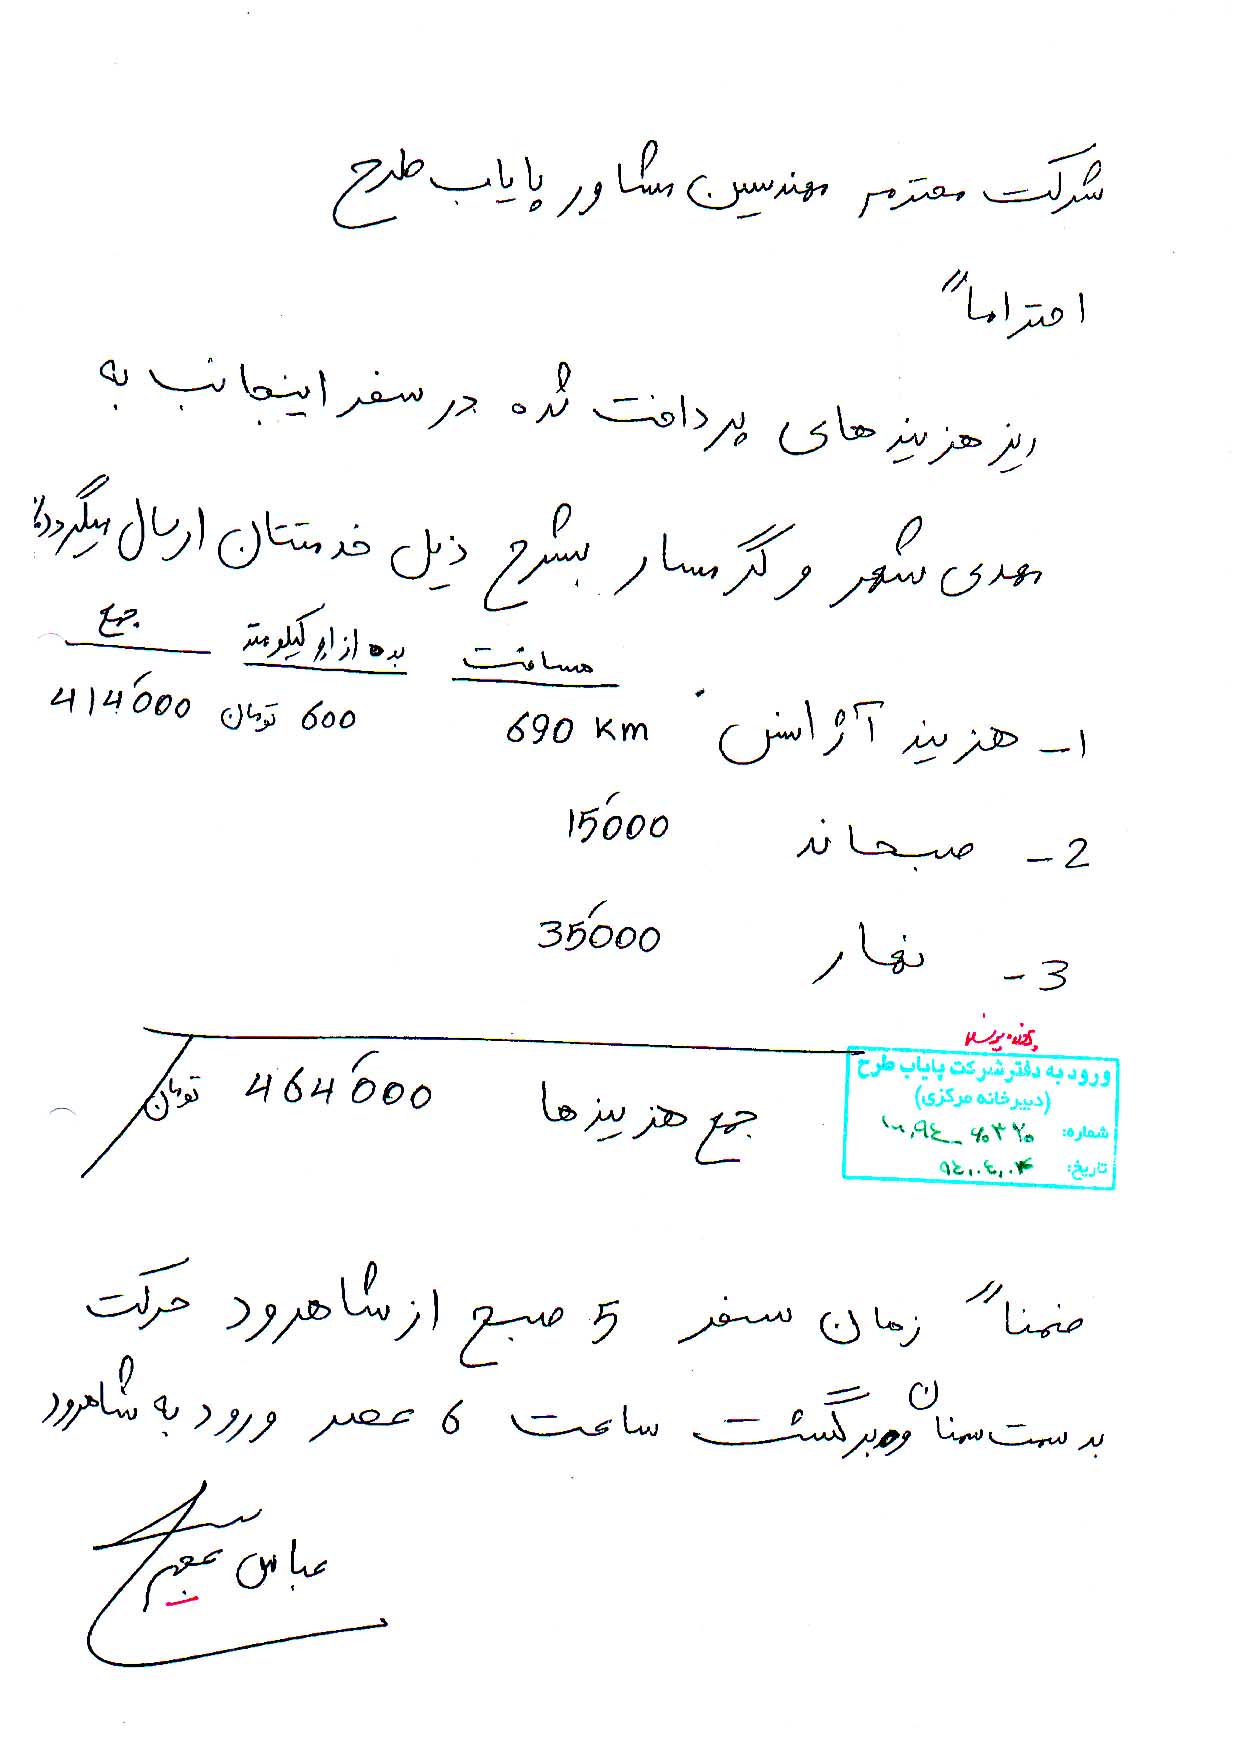 شرکت محترم مهندسین مشاور پایاب طرح
احتراماً
ریز هزینه های پرداخت شده در سفر اینجانب به
مهدی شهر و گرمسار بشرح ذیل خدمتتان ارسال میگردد:
مسافت بده ازاء کیلومتر جمع
1- هزینه آژانس 690 Km 600 تومان 414'000
2- صبحانه 15'000
3- نهار 35'000
جمع هزینه ها 464'000 تومان
ورود به دفتر شرکت پایاب طرح
(دبیرخانه مرکزی)
شماره:
تاریخ: ۹٤,۰٤,۰۴
ضمناً زمان سفر 5 صبح از شاهرود حرکت
به سمت سمنان و برگشت ساعت 6 عصر ورود به شاهرود
عباس